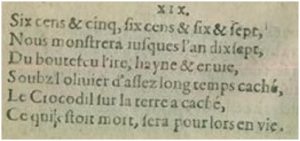 XIX.
Six cens & cinq, six cens & six & ſept,
Nous monſtrera iuſques l'an dixſept,
Du boutefeu l'ire, hayne & enuie,
Soubz l oliuier d'aſſez long temps caché,
Le Crocodil ſur la terre a caché,
Ce qui ſtoit mort, ſera pour lors en vie.